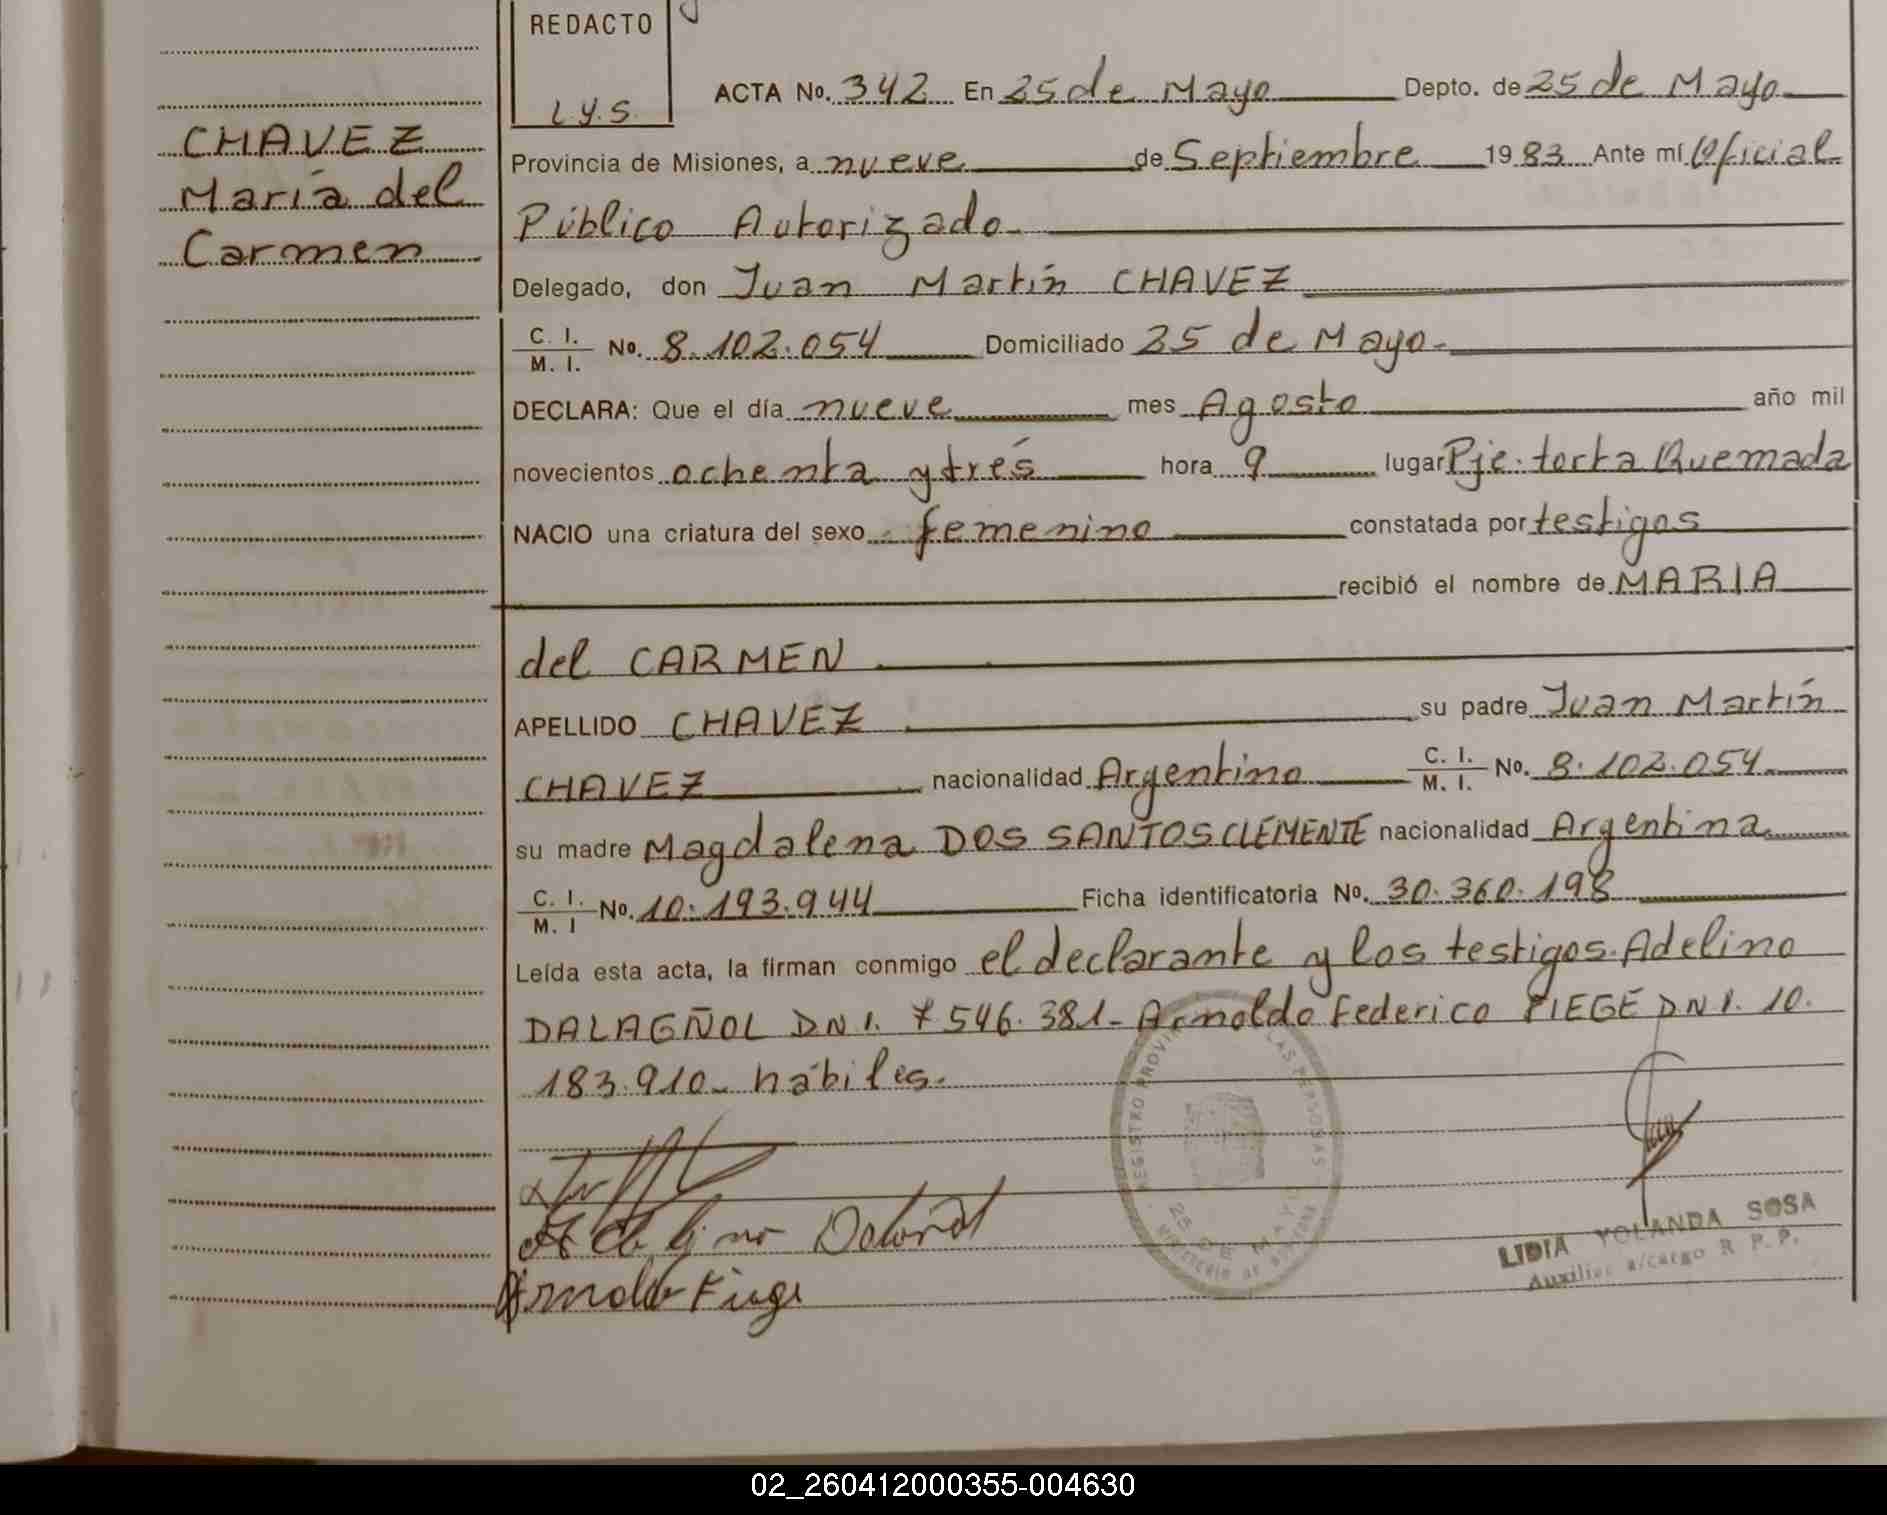 REDACTO
L.Y.S.
CHAVEZ
María del
Carmen
ACTA No. 342 En 25 de Mayo Depto. de 25 de Mayo
Provincia de Misiones, a nueve de Septiembre 1983 Ante mí Oficial
Público Autorizado
Delegado, don Juan Martín CHAVEZ
C. I. / M. I. No. 8.102.054 Domiciliado 25 de Mayo.
DECLARA: Que el día nueve mes Agosto año mil
novecientos ochenta y trés hora 9 lugar Pje. torta Quemada
NACIO una criatura del sexo femenino constatada por testigos
recibió el nombre de MARIA
del CARMEN
APELLIDO CHAVEZ su padre Juan Martín
CHAVEZ nacionalidad Argentino C. I. / M. I. No. 8.102.054
su madre Magdalena DOS SANTOS CLEMENTE nacionalidad Argentina
C. I. / M. I No. 10.193.944 Ficha identificatoria No. 30.360.198
Leída esta acta, la firman conmigo el declarante y los testigos. Adelino
DALAGÑOL DNI. 7546.381- Arnoldo Federico PIEGE DNI. 10.
183.910- hábiles.
REGISTRO LAS PERSONAS
25 DE MAYO
Arnoldo
LIDIA YOLANDA SOSA
Auxiliar a/cargo R P. P.
02_260412000355-004630